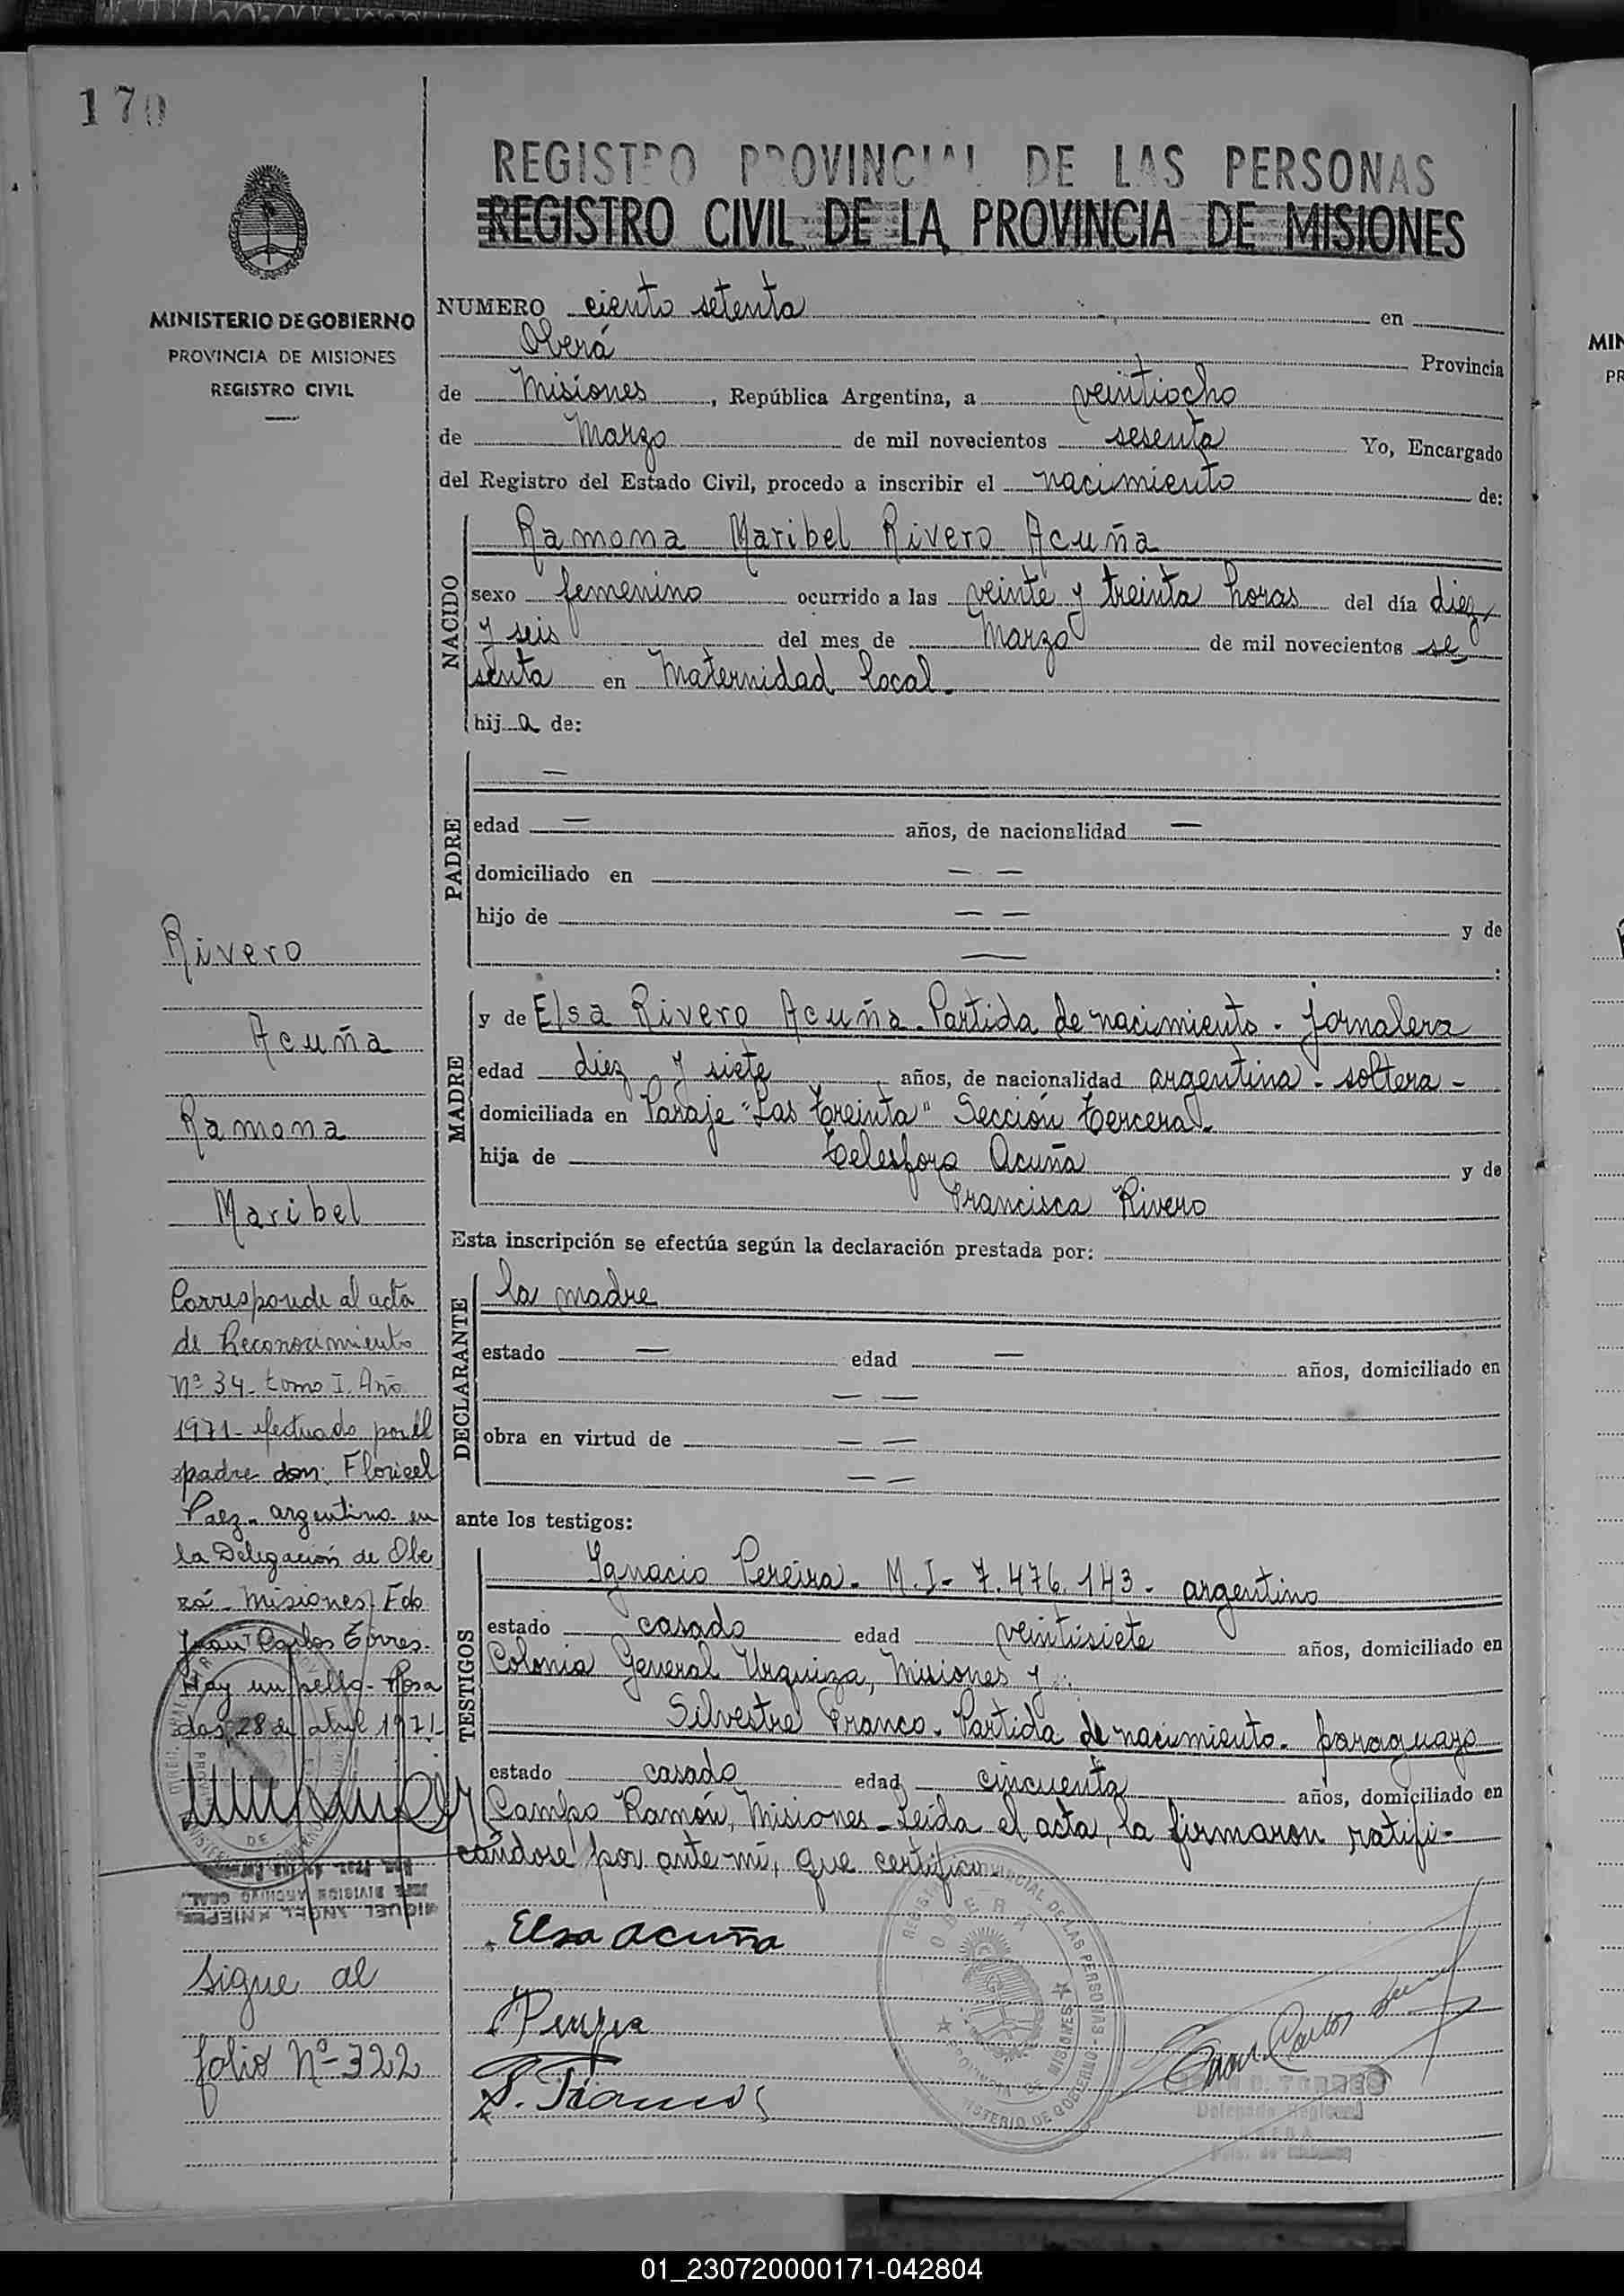 170
REGISTRO PROVINCIAL DE LAS PERSONAS
REGISTRO CIVIL DE LA PROVINCIA DE MISIONES
MINISTERIO DE GOBIERNO
PROVINCIA DE MISIONES
REGISTRO CIVIL
NUMERO ciento setenta en
Oberá Provincia
de Misiones, República Argentina, a veintiocho
de Marzo de mil novecientos sesenta Yo, Encargado
del Registro del Estado Civil, procedo a inscribir el nacimiento de:
NACIDO
Ramona Maribel Rivero Acuña
sexo femenino ocurrido a las veinte y treinta horas del día diez
y seis del mes de Marzo de mil novecientos se
senta en Maternidad local.
hija de:
PADRE
—
edad — años, de nacionalidad —
domiciliado en — —
hijo de — — y de
— :
MADRE
y de Elsa Rivero Acuña. Partida de nacimiento. jornalera
edad diez y siete, años, de nacionalidad argentina - soltera -
domiciliada en Paraje "Las Treinta" Sección Tercera.
hija de Telesfora Acuña y de
Francisca Rivero
Esta inscripción se efectúa según la declaración prestada por:
DECLARANTE
la madre
estado — edad — años, domiciliado en
— —
obra en virtud de — —
— —
ante los testigos:
TESTIGOS
Ignacio Pereira - M.I - 7.476.143 - argentino
estado casado edad veintisiete años, domiciliado en
Colonia General Urquiza, Misiones y
Silvestre Franco - Partida de nacimiento - paraguayo
estado casado edad cincuenta años, domiciliado en
Campo Ramón, Misiones - Leída el acta, la firmaron ratifi-
cándose por ante mí, que certifico
Elsa acuña
Juan Carlos
Delegado Regional
REGISTRO PROVINCIAL DE LAS PERSONAS - MINISTERIO DE GOBIERNO
OBERA
PROVINCIA DE MISIONES
Rivero
Acuña
Ramona
Maribel
Corresponde al acta
de Reconocimiento
Nº 34 - tomo I. Año
1971 - efectuado por el
padre don: Floricel
Paez - argentino en
la Delegación de Obe
rá - Misiones - Fdo
Juan Carlos Torres.
Hay un sello - Posa
das 28 de abril 1971 -
JEFE DIVISION ARCHIVO GRAL.
MIGUEL ANGEL KNIEPER
Sigue al
folio Nº 322
MIN
PR
01_230720000171-042804